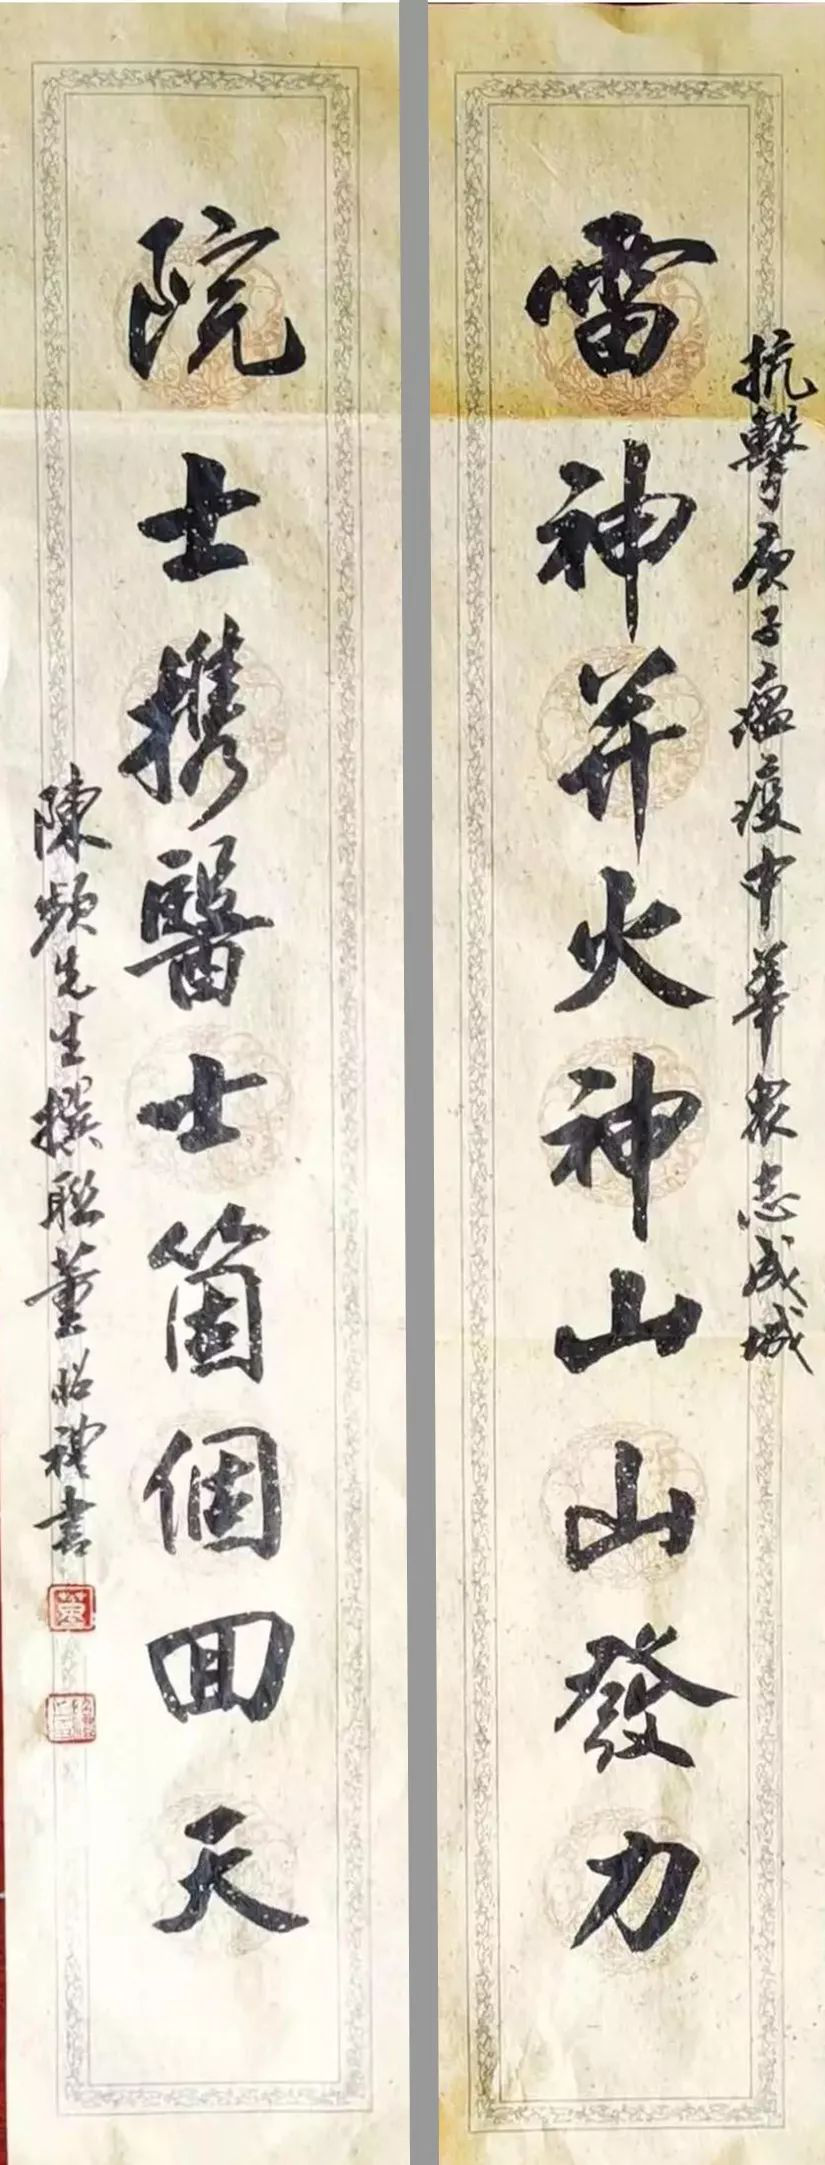 抗擊庚子瘟疫中華眾志成城
雷神并火神山山發力
院士携醫士箇個回天
陳頻先生撰联董昭禮書
董